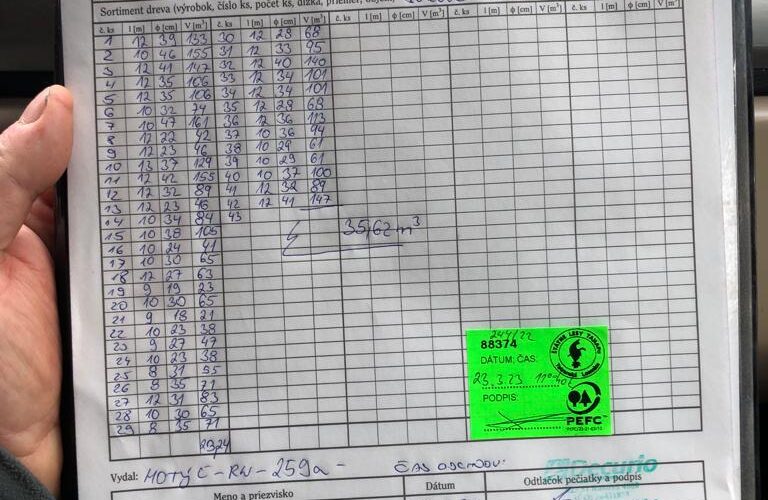 Sortiment dreva (výrobok, číslo ks, počet ks, dĺžka, priemer, objem,
č. ks l [m] ϕ [cm] V [m³] č. ks l [m] ϕ [cm] V [m³] č. ks l [m] ϕ [cm] V [m³] č. ks l [m] ϕ [cm] V [m³] č. ks l [m] ϕ [cm] V [m³]
1 12 39 133 30 12 28 68
2 10 46 155 31 12 33 95
3 12 41 147 32 12 40 140
4 12 35 106 33 12 34 101
5 12 35 106 34 12 34 101
6 10 32 74 35 12 28 68
7 10 47 161 36 12 36 113
8 12 22 42 37 10 36 94
9 12 23 46 38 10 29 61
10 13 37 129 39 10 29 61
11 12 42 155 40 10 37 100
12 12 32 89 41 12 32 89
13 12 23 46 42 12 41 147
14 10 34 84 43
15 10 38 105
35,62 m³
16 10 24 41
17 10 30 65
18 12 27 63
19 9 19 23
20 10 30 65
21 9 18 21
22 10 23 38
23 9 27 47
24 10 23 38
25 8 31 55
26 8 35 71
27 12 31 83
28 10 30 65
29 8 35 71
23,24
244/22
88374
ŠTÁTNE LESY TANAPU
DÁTUM: ČAS:
23.3.23
PODPIS:
PEFC
Vydal: MOTYČ-RN-259a-
Decurio
Meno a priezvisko Dátum Odtlačok pečiatky a podpis